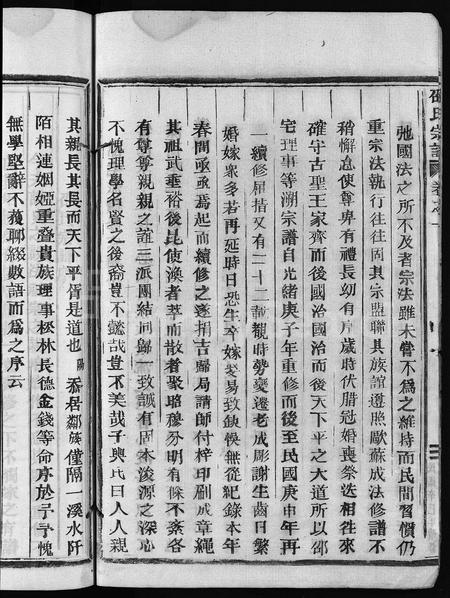 邵氏宗譜 卷之一
弛國法之所不及者宗法雖未嘗不為之維持而民間習慣仍
重宗法執行往往固其宗盟聯其族誼遵照歐蘇成法修譜不
稍懈怠使尊卑有禮長幼有序歲時伏臘冠婚喪祭迭相往來
確守古聖王家齊而後國治國治而後天下平之大道所以邵
宅理事等溯宗譜自光緒庚子年重修而後至民國庚申年再
一續修屈指又有二十二載觀時勢變遷老成彫謝生齒日繁
婚嫁衆多若再延時日恐生卒嫁娶易致缺候無從紀錄本年
春間亟亟為起而續修之遂擇吉歸局請師付梓印刷成章繩
其祖武垂裕後昆使渙者萃而散者聚昭穆分明有條不紊各
有尊尊親親之誼三派團結同歸一致誠有固本浚源之深心
不愧理學名賢之後裔豈不懿哉豈不美哉子輿氏曰人人親
其親長其長而天下平胥是道也陽忝居鄰族僅隔一溪水阡
陌相連姻婭重叠貴族理事松林長德金錢等命序於予予愧
無學堅辭不獲聊綴數語而為之序云